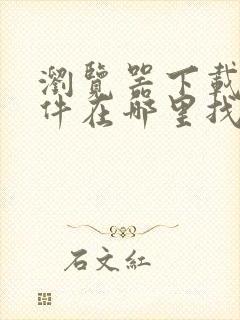 瀏覽器下載
件在哪里找
石文紅